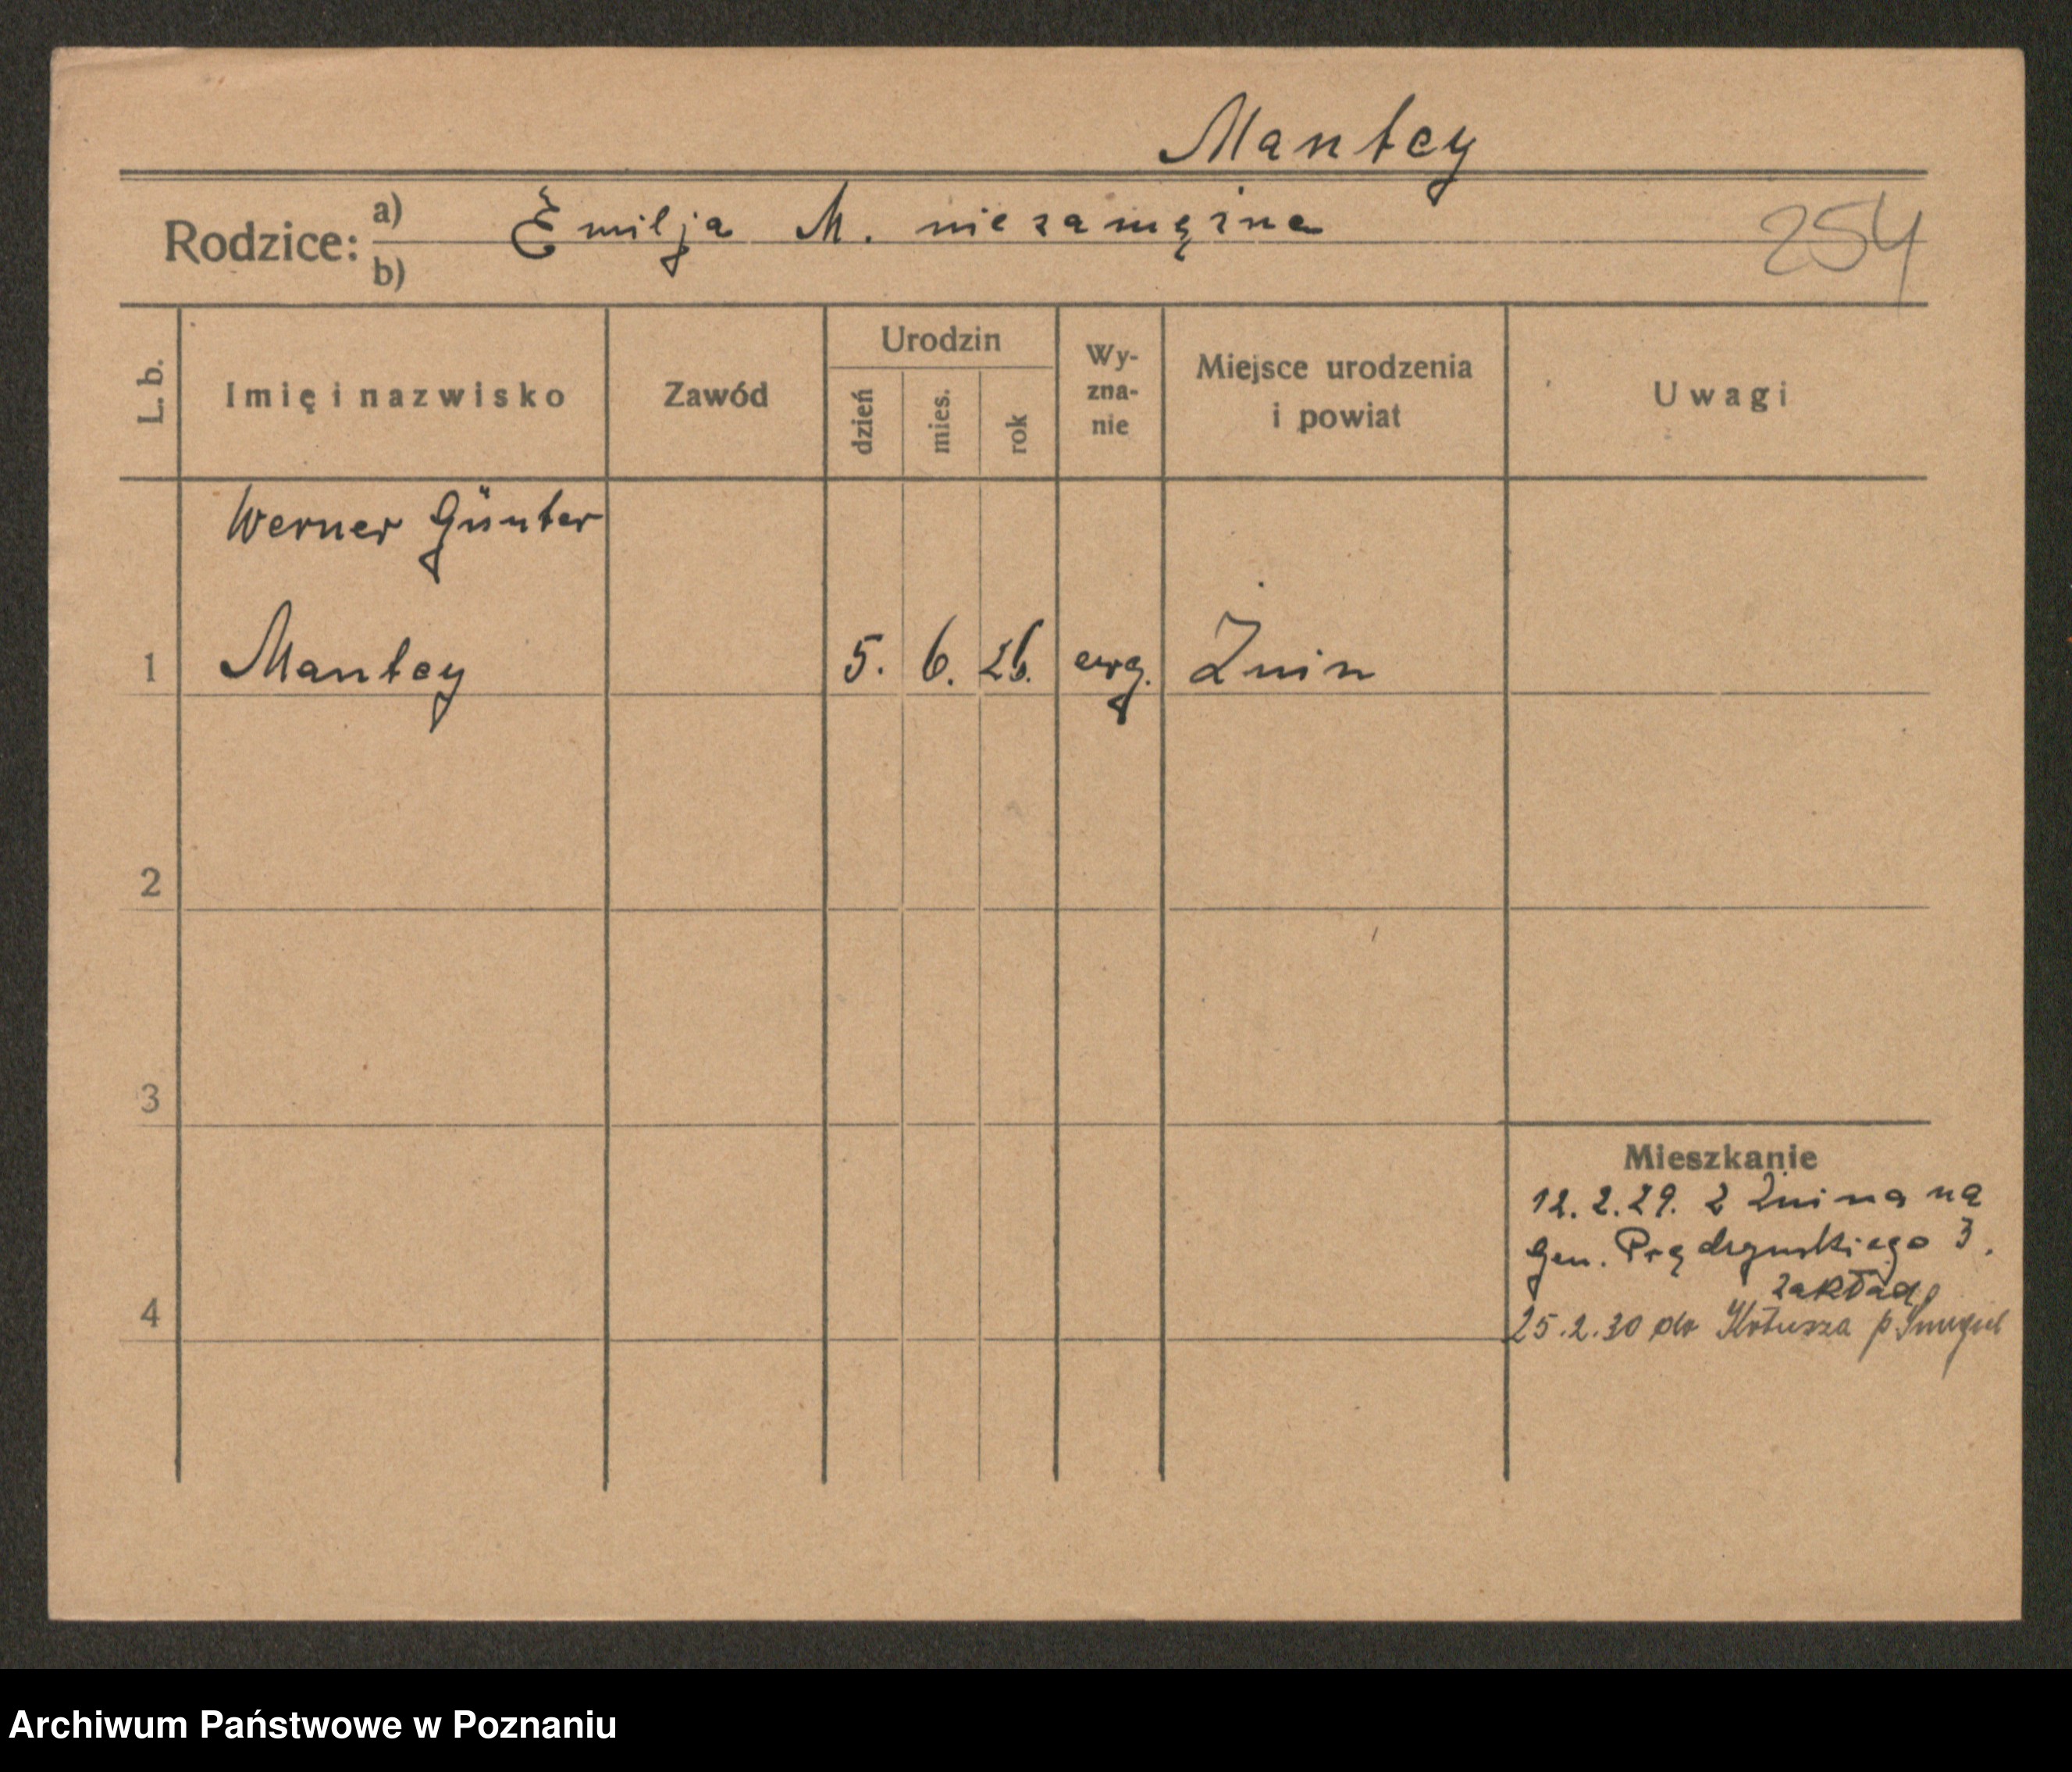 Mantey
Rodzice: a) Emilja M. niezamężna
b)
254
L. b.
Imię i nazwisko
Zawód
Urodzin
dzień
mies.
rok
Wy-
zna-
nie
Miejsce urodzenia
i powiat
Uwagi
Werner Günter
1 Mantey 5. 6. 26. ewg. Żnin
2
3
Mieszkanie
12.2.29. z Żnina na
gen. Prądzyńskiego 3.
zakład
4
25.2.30 do Kotusza p. Śmigiel
Archiwum Państwowe w Poznaniu